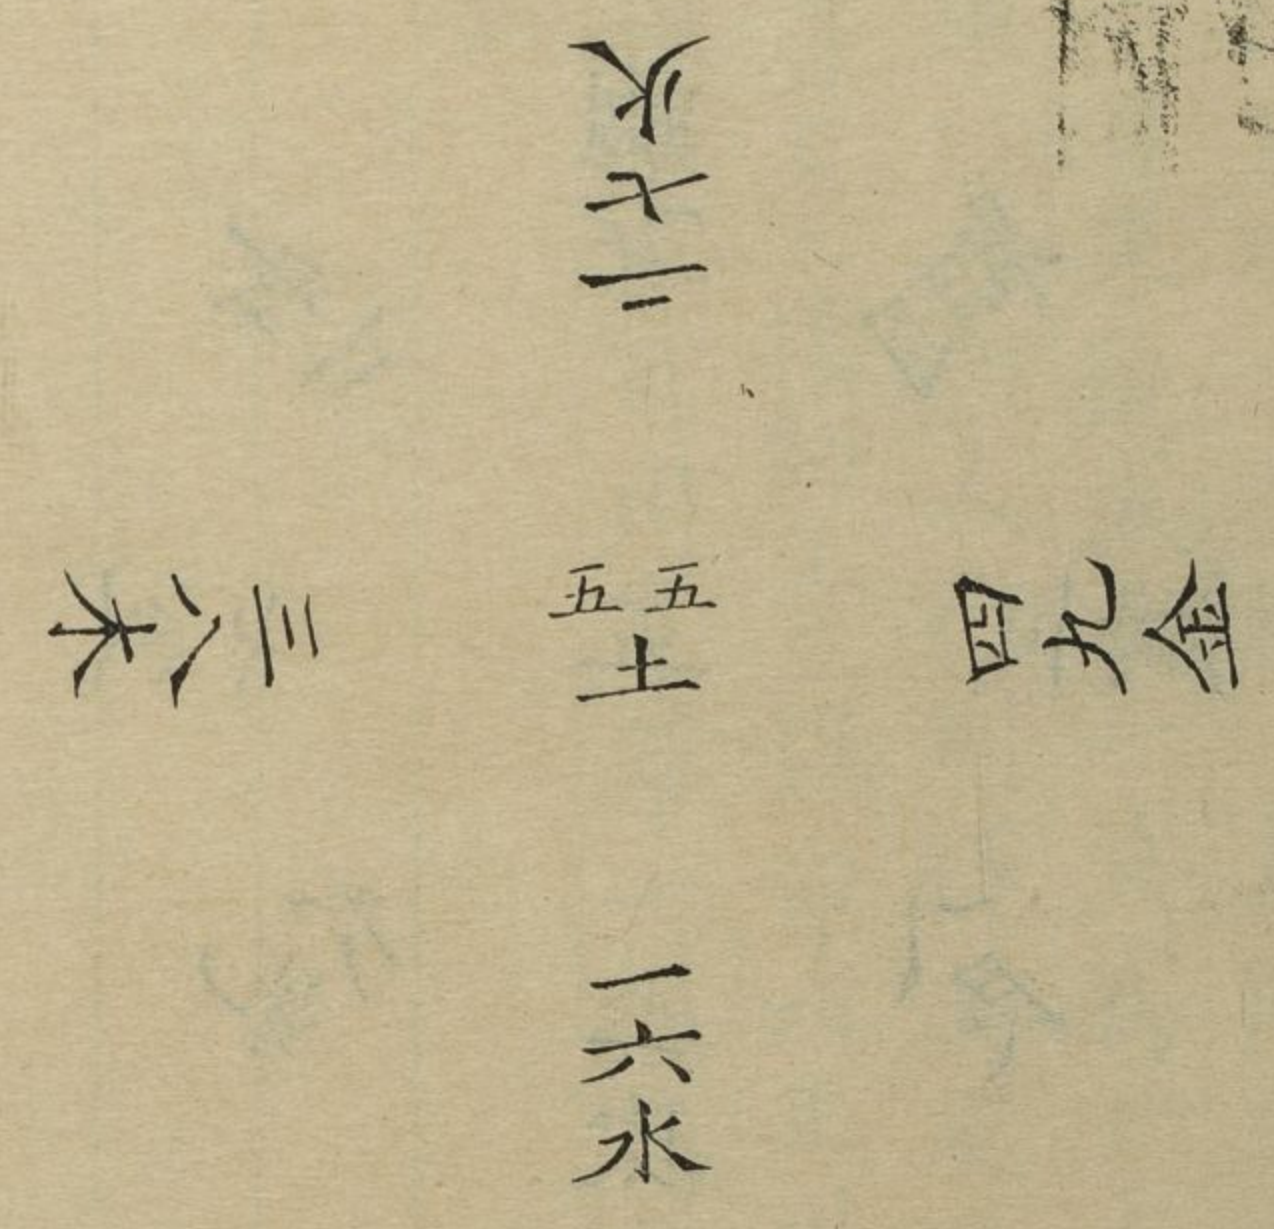 二七火
三八木
五五
土
四九金
一六水